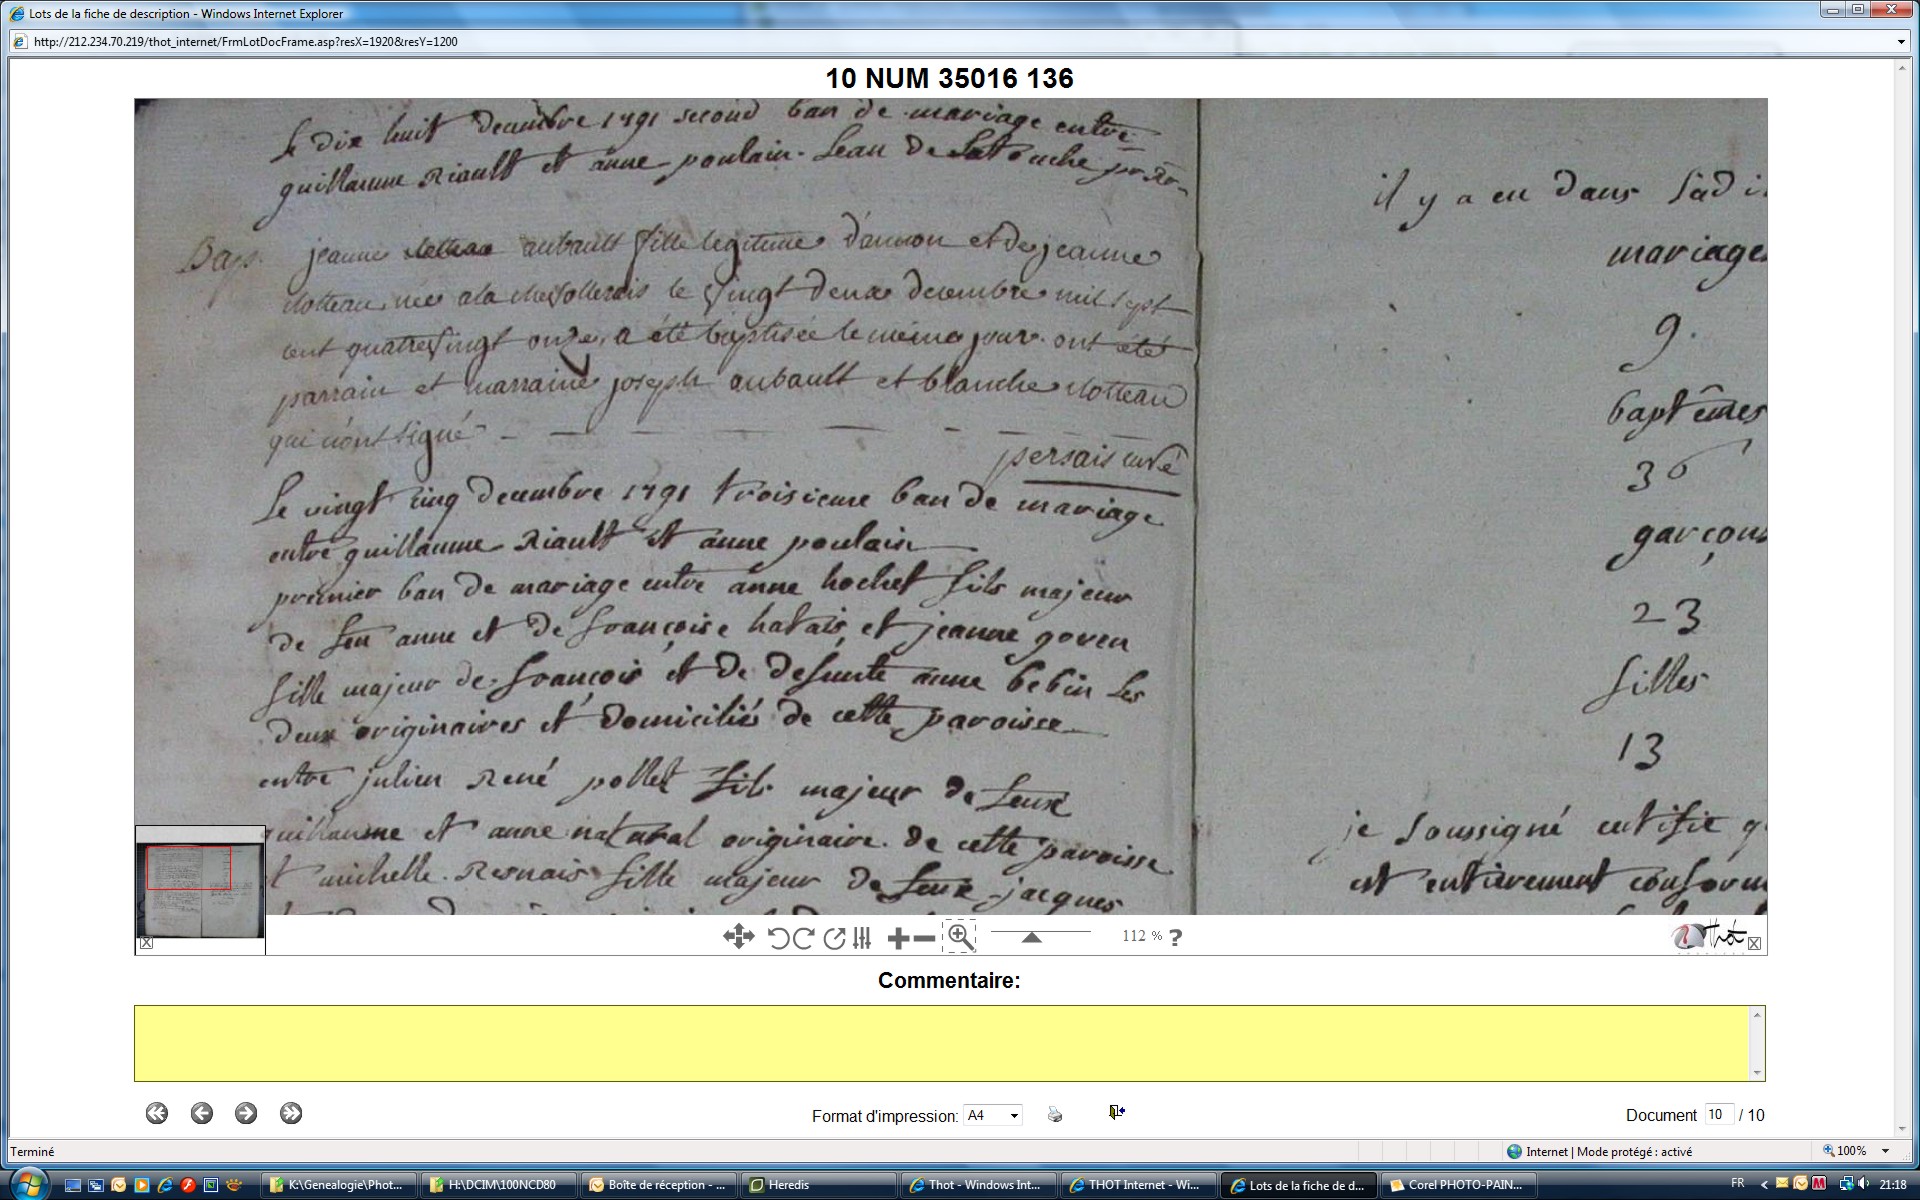 Lots de la fiche de description - Windows Internet Explorer
http://212.234.70.219/thot_internet/FrmLotDocFrame.asp?resX=1920&resY=1200
10 NUM 35016 136
Le dix huit decembre 1791 second ban de mariage entre
guillaume Riault et anne poulain. Jean De Latouche
Bap. jeanne aubault fille legitime d'annon et de jeanne
clotteau née a la le vingt deux decembre mil sept
cent quatrevingt onze, a été baptisée le même jour. ont été
parrain et marraine joseph aubault et blanche clotteau
qui n'ont signé
persais curé
Le vingt cinq decembre 1791 troisieme ban de mariage
entre guillaume Riault et anne poulain
premier ban de mariage entre anne hochet fils majeur
de feu anne et de françoise hatais, et jeanne goven
fille majeur de françois et de defunte anne bebin les
deux originaires et domiciliés de cette paroisse
entre julien René pollet fils majeur de feux
guillaume et anne natural originaire de cette paroisse
et michelle Resnais fille majeur de feux jacques
il y a eu dans lad
mariages
9.
baptêmes
36
garçons
23
filles
13
je soussigné certifie q
est entierement conform
112 %
?
Thot
Commentaire:
Format d'impression: A4
Document 10 / 10
Terminé
Internet | Mode protégé : activé
100%
K:\Genealogie\Phot...
H:\DCIM\100NCD80
Boîte de réception - ...
Heredis
Thot - Windows Int...
THOT Internet - Wi...
Lots de la fiche de d...
Corel PHOTO-PAIN...
FR
21:18